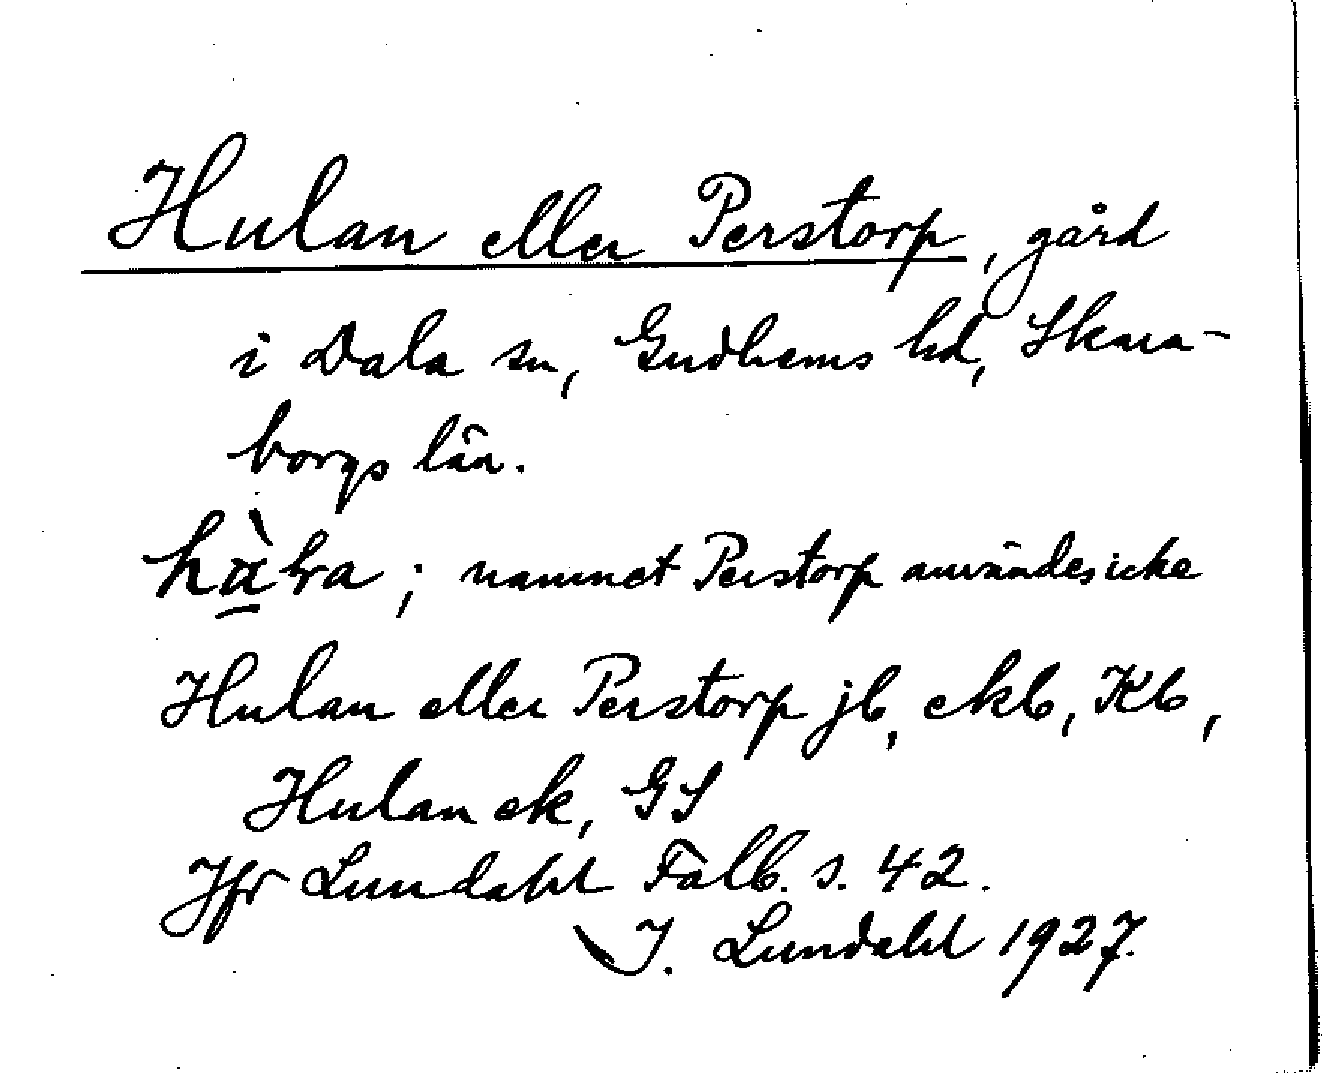 Hulan eller Perstorp, gård
i Dala sn, Gudhems hd, Skara-
borgs län.
namnet Perstorp användes icke
Hulan eller Perstorp jb, ekb, Kb,
Hulan ek, GS
Jfr Lundahl Falb. s. 42.
I. Lundahl 1927.